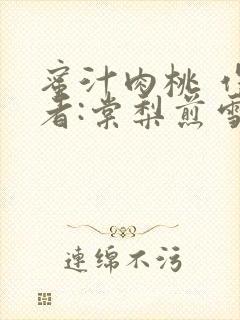 蜜汁肉桃 作
者:棠梨煎雪
連綿不污